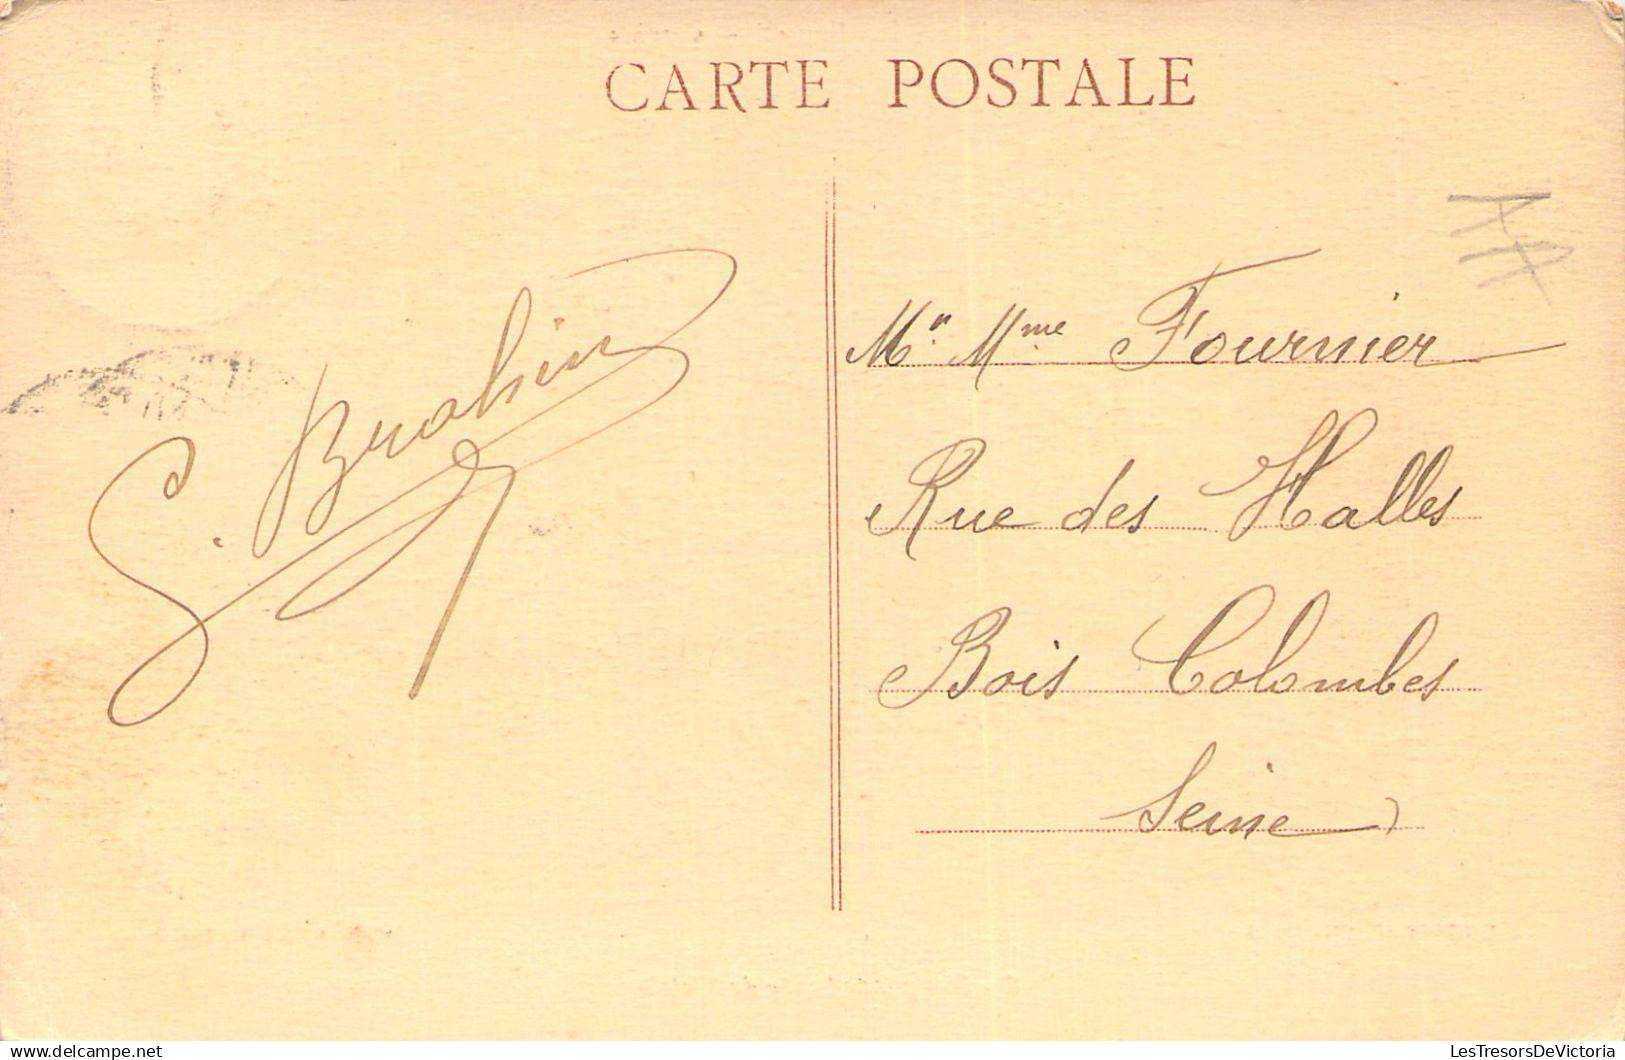 CARTE POSTALE
Mr Mme Fournier
Rue des Halles
Bois Colombes
Seine
LesTresorsDeVictoria